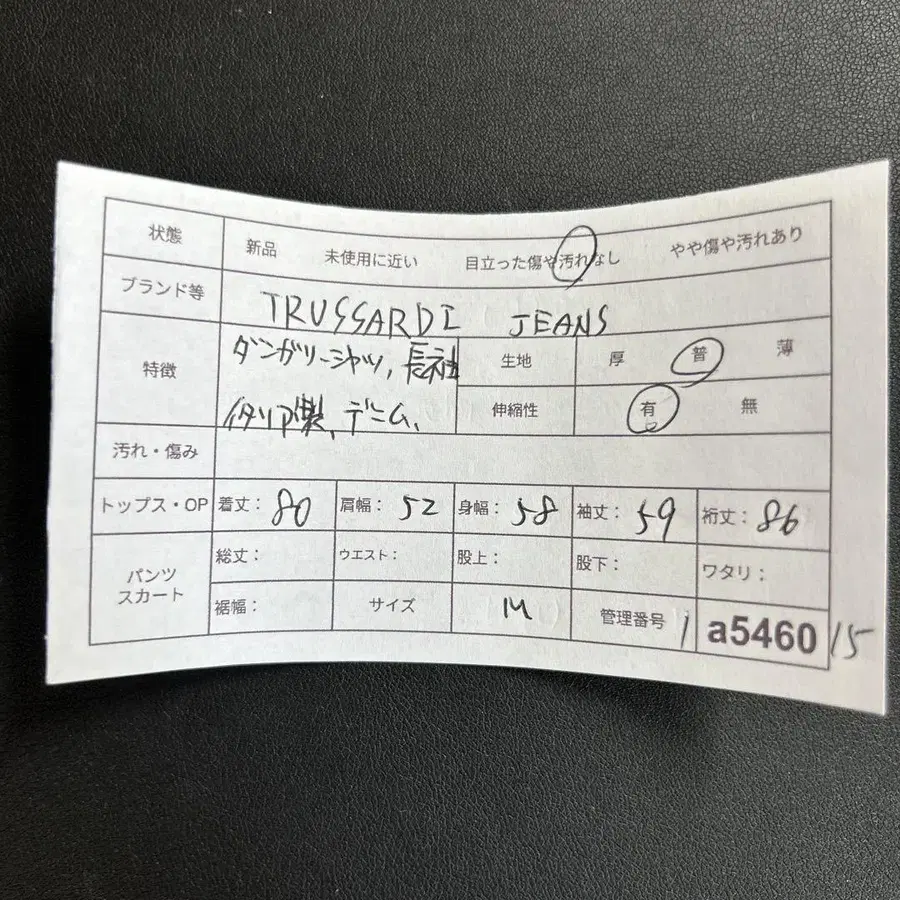 状態 新品 未使用に近い 目立った傷や汚れなし やや傷や汚れあり
ブランド等 TRUSSARDI JEANS
特徴 ダンガリーシャツ, 長袖
イタリア製, デニム,
生地 厚 普 薄
伸縮性 有 無
汚れ・傷み
トップス・OP 着丈: 80 肩幅: 52 身幅: 58 袖丈: 59 裄丈: 86
パンツ
スカート
総丈: ウエスト: 股上: 股下: ワタリ:
裾幅: サイズ M 管理番号 1 a5460 15